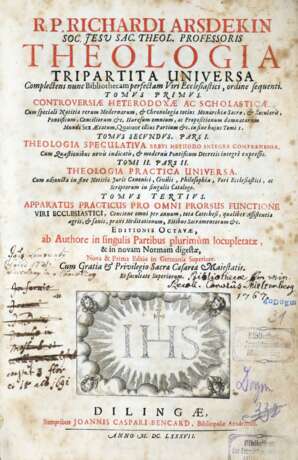 R. P. RICHARDI ARSDEKIN
SOC. JESU SAC. THEOL. PROFESSORIS
THEOLOGIA
TRIPARTITA UNIVERSA
Complectens nunc Bibliothecam perfectam Viri Ecclesiastici, ordine sequenti.
TOMUS PRIMUS.
CONTROVERSIÆ HETERODOXÆ AC SCHOLASTICÆ.
Cum speciali Notitia rerum Modernarum, & Chronologia totius Monarchiæ Sacræ, & Sæcularis,
Pontificum, Conciliorum &c. Hæresum omnium, ac Propositionum damnatarum
TOMUS SECUNDUS. PARS I.
THEOLOGIA SPECULATIVA BREVI METHODO INTEGRA COMPREHENSA,
Cum Quæstionibus novis indicatis, & modernis Pontificum Decretis integrè expressis.
TOMI II. PARS II.
THEOLOGIA PRACTICA UNIVERSA.
Cum adjuncta in fine Notitia Juris Canonici, Civilis, Philosophiæ, Viri Ecclesiastici, ac
Scriptorum in singulis Catalogo.
TOMUS TERTIUS.
APPARATUS PRACTICUS PRO OMNI PRORSUS FUNCTIONE
VIRI ECCLESIASTICI, Concione omni per annum, tota Catechesi, qualibet Assistentia
ægris, & sanis, praxi Meditationum, Ritibus Sacramentorum &c.
EDITIONIS OCTAVÆ,
ab Authore in singulis Partibus plurimùm locupletatæ,
& in novam Normam digestæ,
Nova & Prima Editio in Germania Superiore.
Cum Gratia & Privilegio Sacræ Cæsareæ Majestatis.
Et facultate Superiorum.
1767
IHS
DILINGÆ,
Sumptibus JOANNIS CASPARI BENCARD, Bibliopolæ Academici.
ANNO M. DC. LXXXVII.